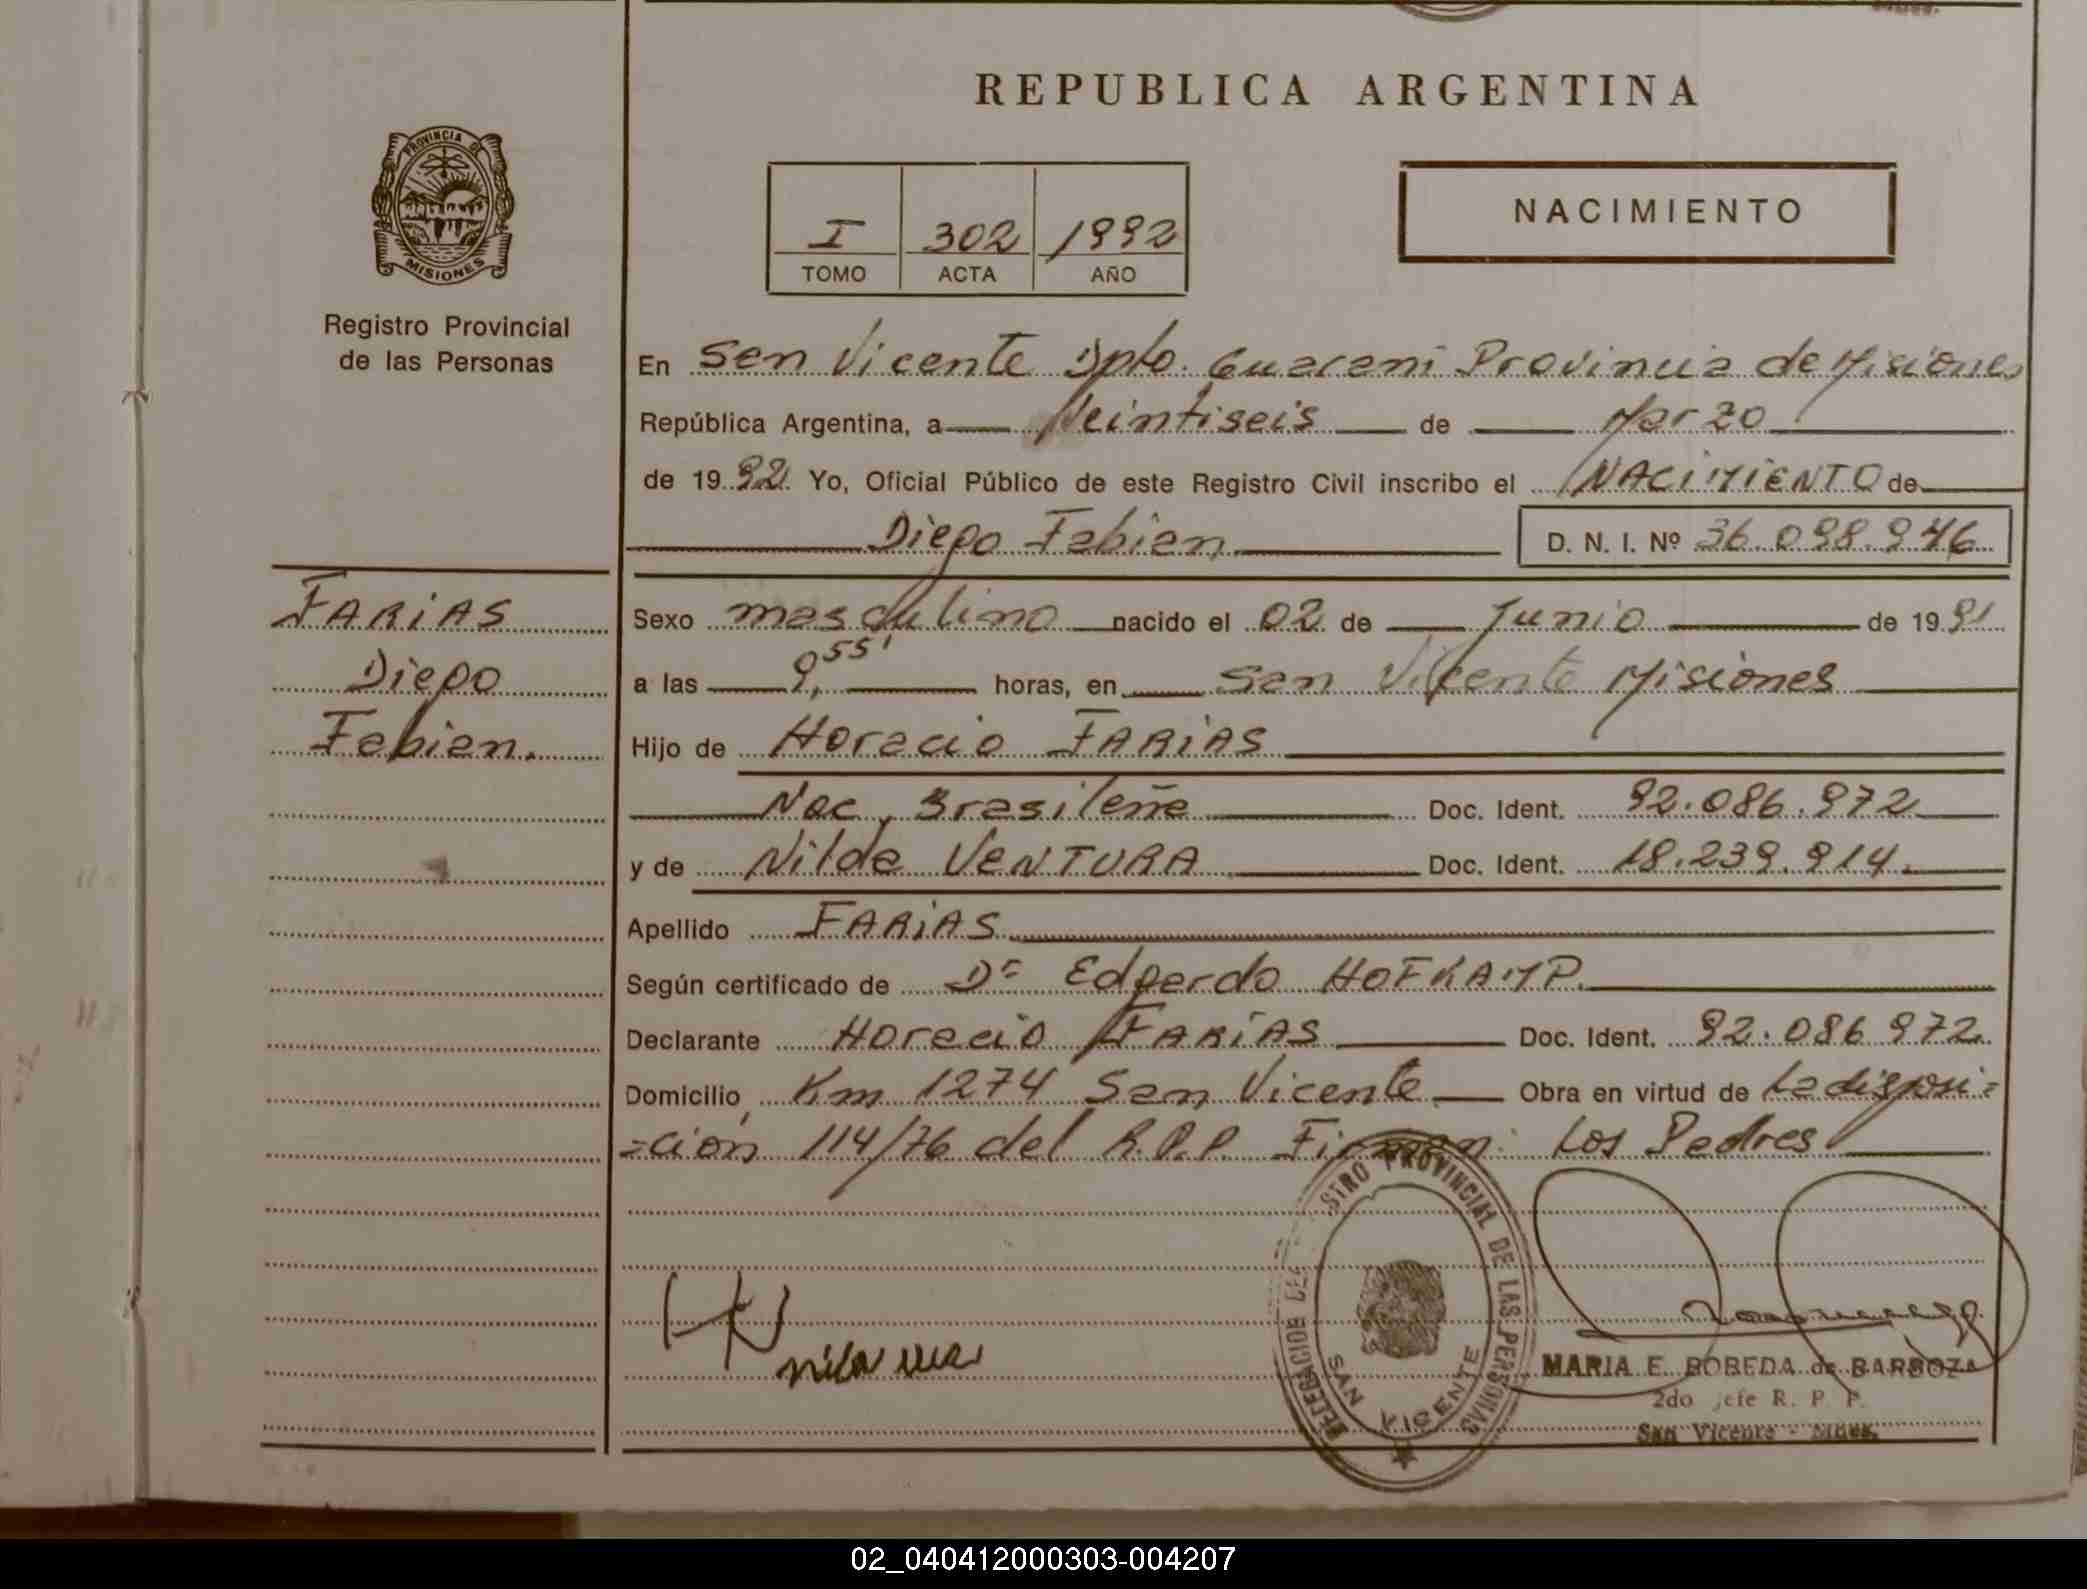 REPUBLICA ARGENTINA
PROVINCIA DE
MISIONES
Registro Provincial
de las Personas
I 302 1992
TOMO ACTA AÑO
NACIMIENTO
En San Vicente Dpto. Guarani Provincia de Misiones
República Argentina, a Veintiseis de Marzo
de 1992 Yo, Oficial Público de este Registro Civil inscribo el NACIMIENTO de
Diego Fabian D. N. I. Nº 36.098.946
FARIAS
Diego
Fabian.
Sexo masculino nacido el 02 de Junio de 1991
a las 9,55' horas, en San Vicente Misiones
Hijo de Horacio FARIAS
Nac. Brasileña Doc. Ident. 92.086.972
y de Nilda VENTURA Doc. Ident. 18.239.914.
Apellido FARIAS
Según certificado de Dr Edgardo HOFKAMP.
Declarante Horacio FARIAS Doc. Ident. 92.086 972
Domicilio Km 1274 San Vicente Obra en virtud de La disposi=
=ción 114/76 del R.P.P. Firman: Los Padres
DELEGACION DEL REGISTRO PROVINCIAL DE LAS PERSONAS
SAN VICENTE
MARIA E. BOBEDA de BARBOZA
2do jefe R. P. P.
San Vicente - Mnes.
02_040412000303-004207